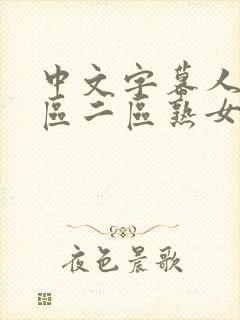 中文字幕人
區二區熟女
夜色晨歌